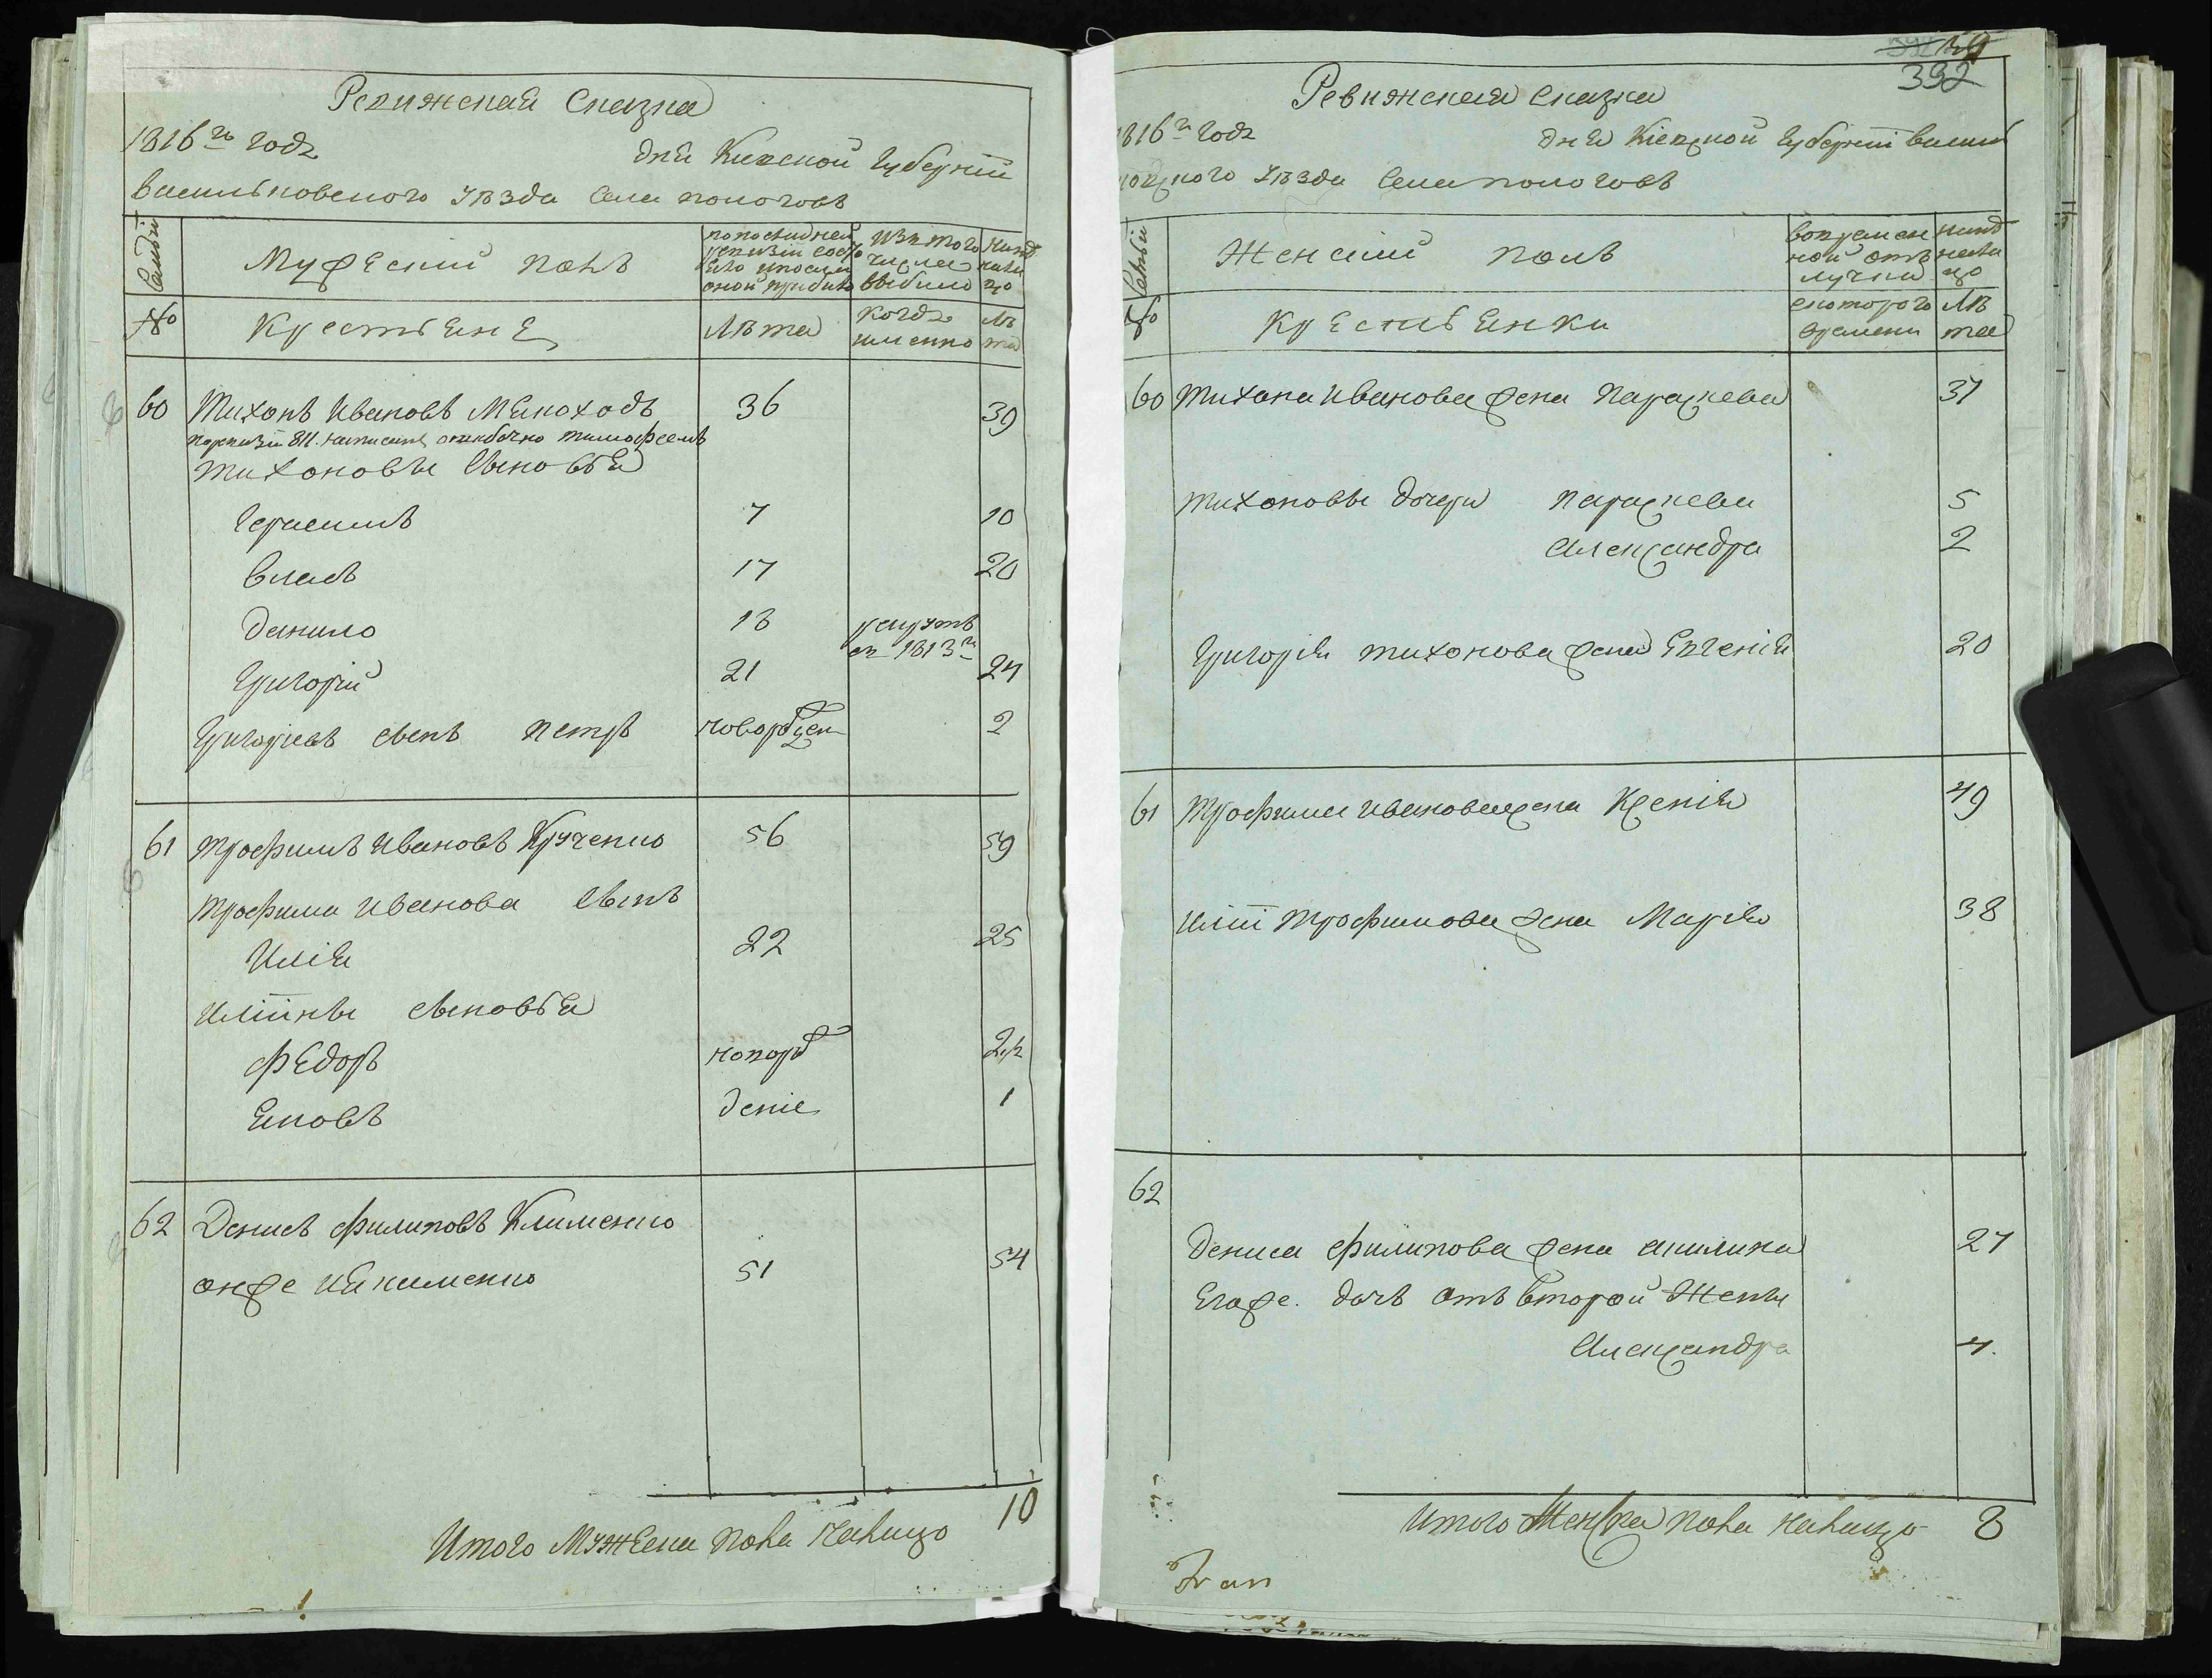 Ревижская Сказка
1816го года дня Киевской Губернїи
Васильковского Уѣзда Села пологовъ
Семьи
Мужескїй полъ
по последней ревизїи состояло и после оной прибыло
Изъ того числа выбыло
Нынѣ на лицо
№
Крестьяне
Лѣта
когда именно
Лѣта
60 Тихонъ Ивановъ Мелоходъ 36 39
по ревизїи 811. написанъ ошибочно тимофеемъ
тихоновы сыновья
Герасимъ 7 10
Власъ 17 20
Данило 18 рекрутъ въ 1813го
Григорїй 21 24
Григорїевъ сынъ петръ новорожден 2
61 трофимъ Ивановъ Кученко 56 59
трофима Иванова сынъ
Илїя 22 25
Илїины сыновья
Федоръ новорож 2 1/2
Яковъ денїе 1
62 Денисъ филиповъ Клименко
онже Якименко 51 54
Итого Мужеска пола налицо 10
392
Ревижская Сказка
1816го года дня Кїевской Губернїи Василь
ковского Уѣзда Села пологовъ
Семьи
Женскїй полъ
во временной отлучки
нынѣ налицо
№
Крестьянки
с которого времени
Лѣта
60 тихона Иванова жена параскева 37
тихоновы дочери параскева 5
Александра 2
Григорїя тихонова жена Евгенїя 20
61 трофима Иванова жена Ксенїя 49
Илїи трофимова жена Марїя 38
62
Дениса филипова жена акилина 27
Егоже. дочь отъ второй Жены
Александра 4.
Итого Женска пола налицо 8